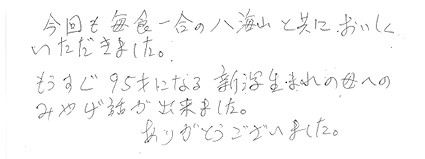 今回も毎食一合の八海山と共においしく
いただきました。
もうすぐ95才になる新潟生まれの母への
みやげ話が出来ました。
ありがとうございました。